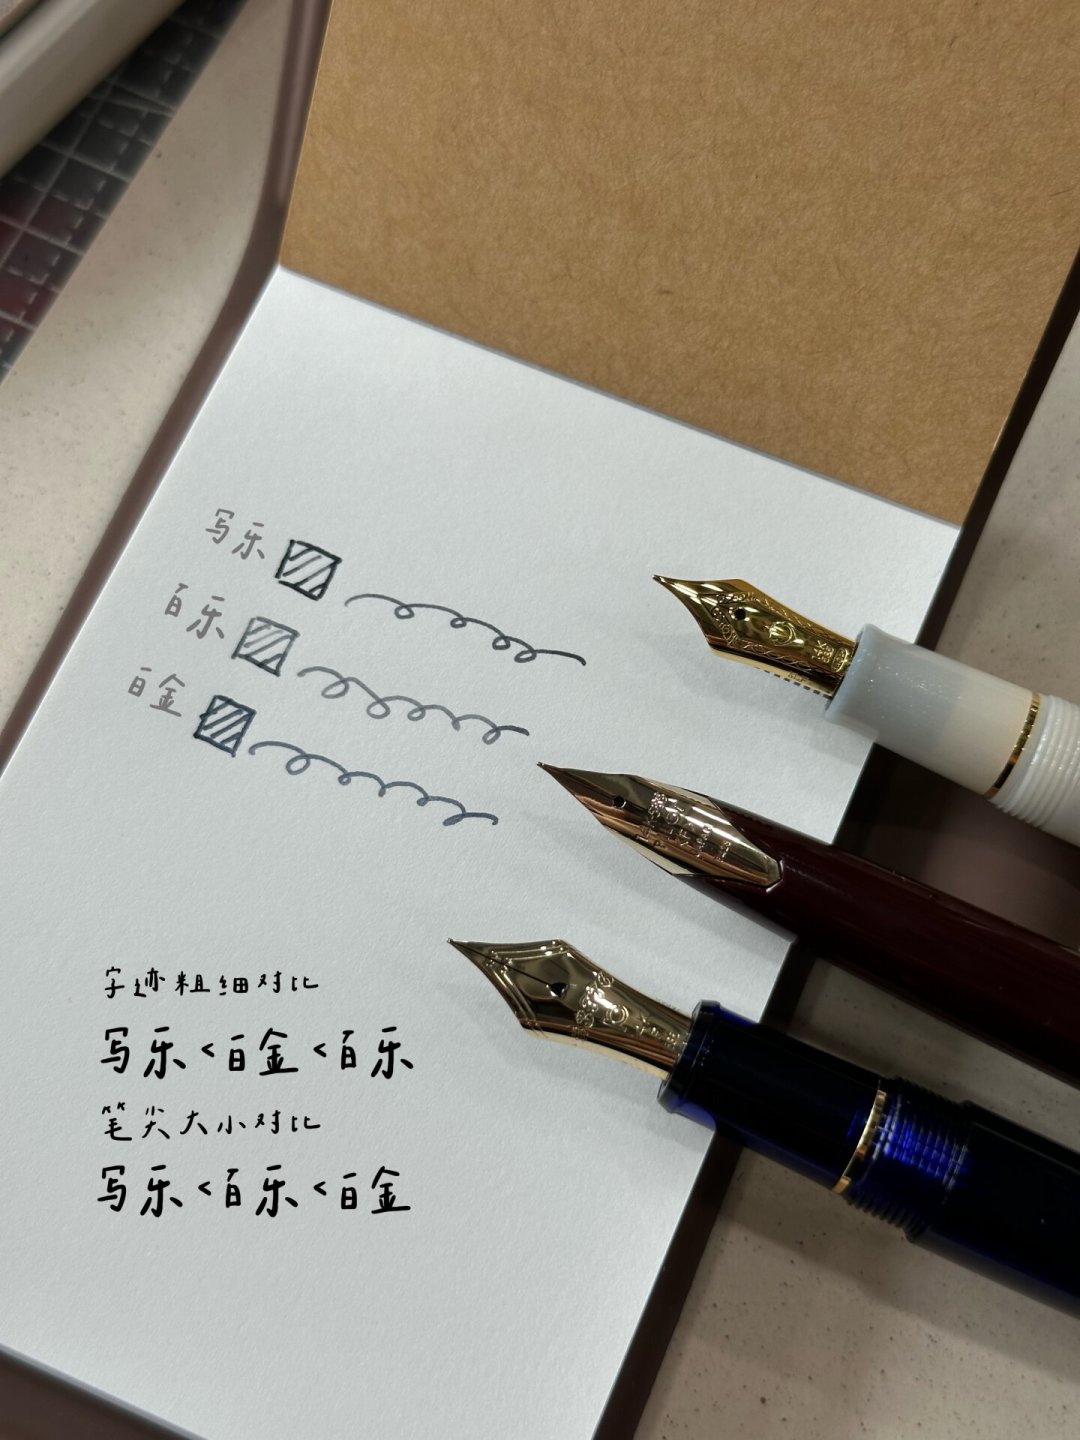 写乐
百乐
白金
字迹粗细对比
写乐<白金<百乐
笔尖大小对比
写乐<百乐<白金
14K
585